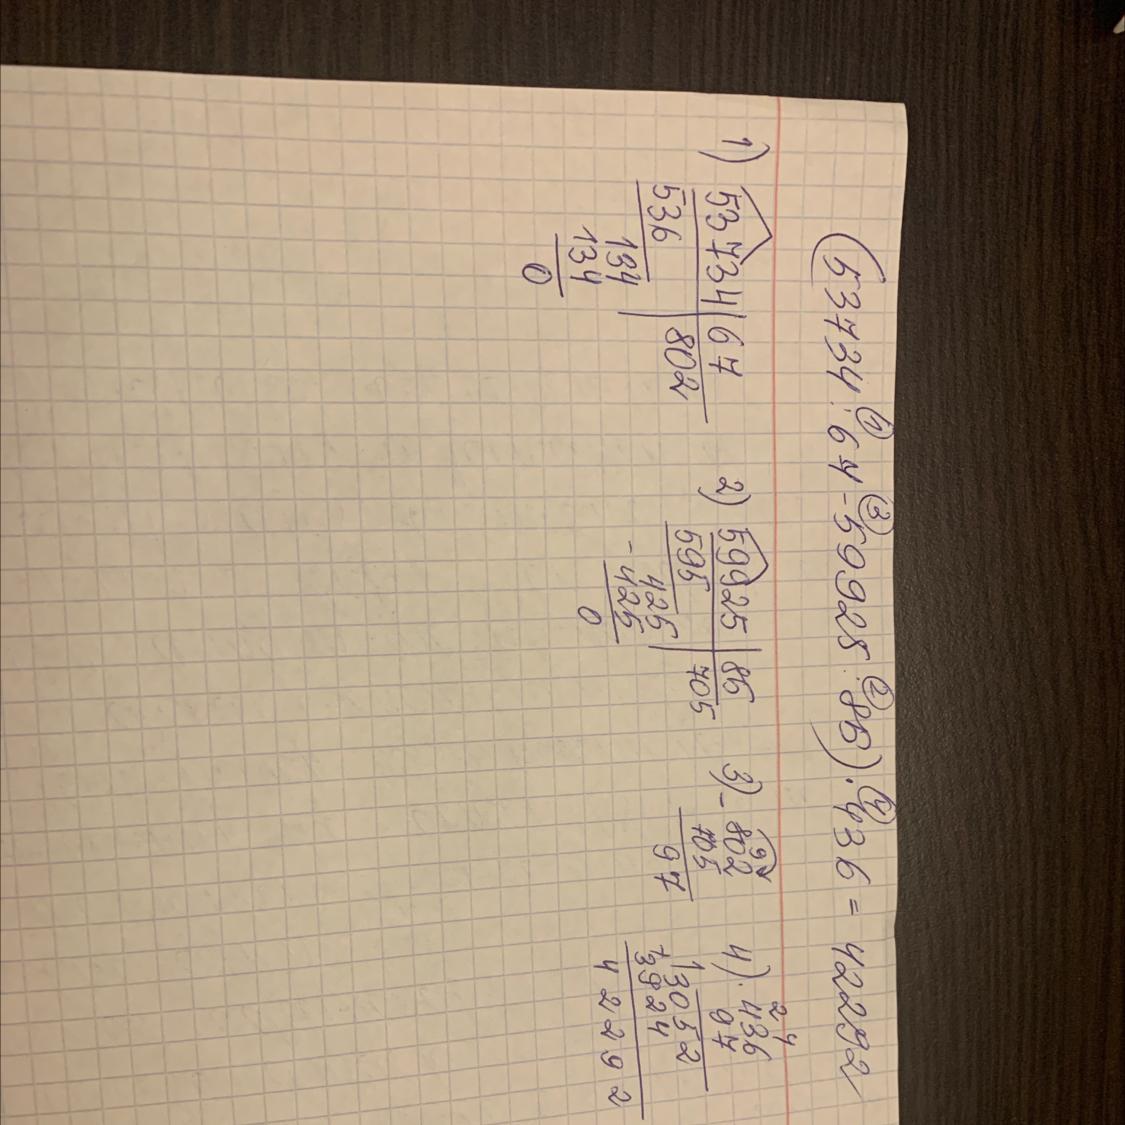 (53734 : 67 - 59925 : 85) · 436 = 42292
① ③ ② ④
1) 53734 | 67
536 | 802
134
134
0
2) 59925 | 85
595 | 705
425
- 425
0
3) - 802
705
97
4) · 436
97
3052
+ 3924
42292